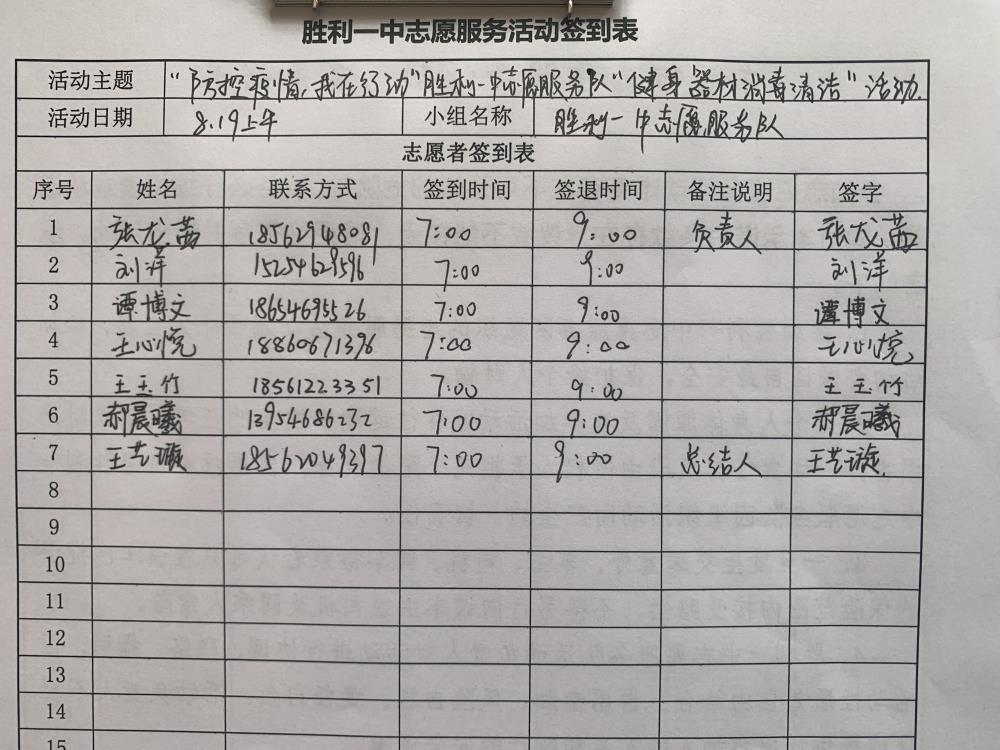 胜利一中志愿服务活动签到表
活动主题 “防控疫情,我在行动”胜利一中志愿服务队“健身器材消毒清洁”活动.
活动日期 8.19上午 小组名称 胜利一中志愿服务队
志愿者签到表
序号 姓名 联系方式 签到时间 签退时间 备注说明 签字
1 张龙茜 18562948081 7:00 9:00 负责人 张龙茜
2 刘洋 15254629596 7:00 9:00 刘洋
3 谭博文 18654695526 7:00 9:00 谭博文
4 王心悦 18860671396 7:00 9:00 王心悦
5 王玉竹 18561223351 7:00 9:00 王玉竹
6 郝晨曦 13954686232 7:00 9:00 郝晨曦
7 王艺璇 18562049397 7:00 9:00 总结人 王艺璇
8
9
10
11
12
13
14
15